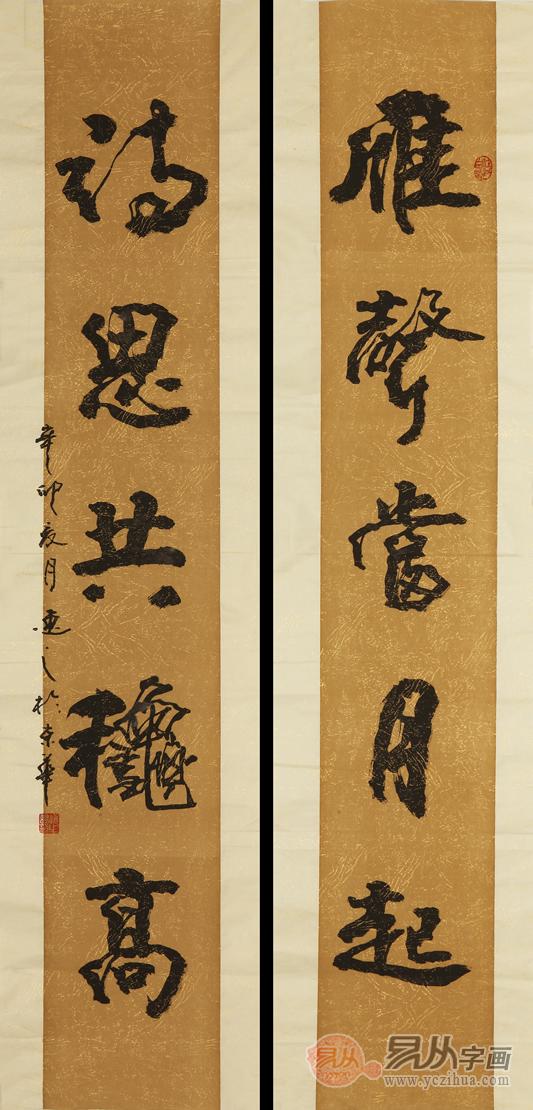 雁聲當月起
詩思共龝高
辛卯夏月
之於京華
易从字画
www.yczihua.com